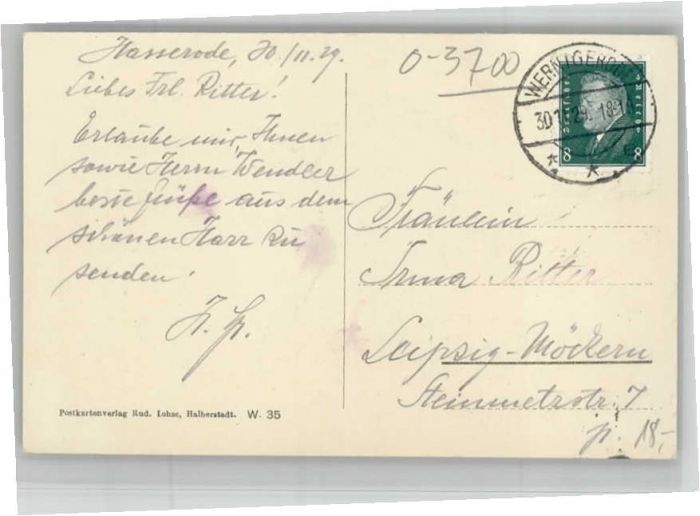 Hasserode, 30./11.29.
Liebes Frl. Ritter!
Erlaube mir, Ihnen
sowie Herrn Wendler
beste Grüße aus dem
schönen Harz zu
senden.
0-3700
WERNIGERODE
30.11.29. 18-19
Deutsches Reich
8 8
Fräulein
Irma Ritter
Leipzig-Möckern
Steinmetzstr. 7
p. 18,-
Postkartenverlag Rud. Lohse, Halberstadt. W. 35